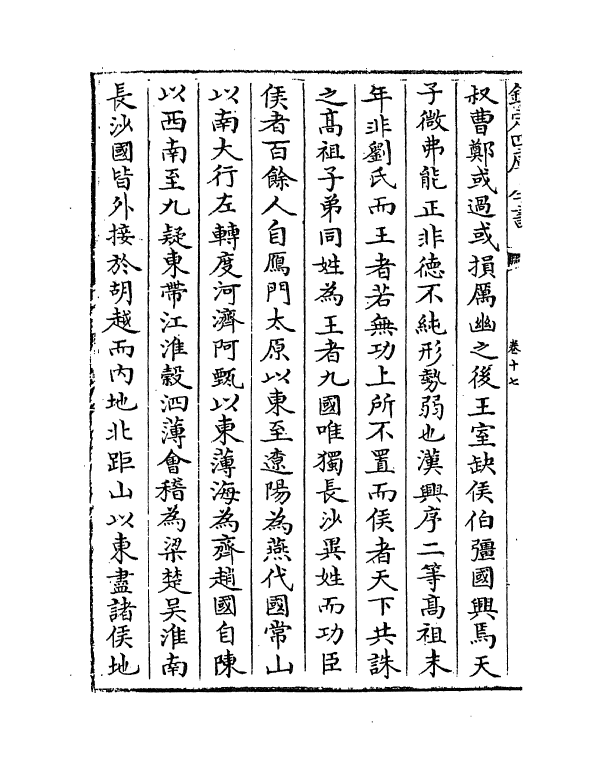 欽定四庫全書
卷十七
叔曹鄭或過或損厲幽之後王室缺侯伯彊國興焉天
子微弗能正非德不純形勢弱也漢興序二等髙祖末
年非劉氏而王者若無功上所不置而侯者天下共誅
之髙祖子弟同姓為王者九國唯獨長沙異姓而功臣
侯者百餘人自鴈門太原以東至遼陽為燕代國常山
以南大行左轉度河濟阿甄以東薄海為齊趙國自陳
以西南至九疑東帶江淮穀泗薄會稽為梁楚吴淮南
長沙國皆外接於胡越而内地北距山以東盡諸侯地